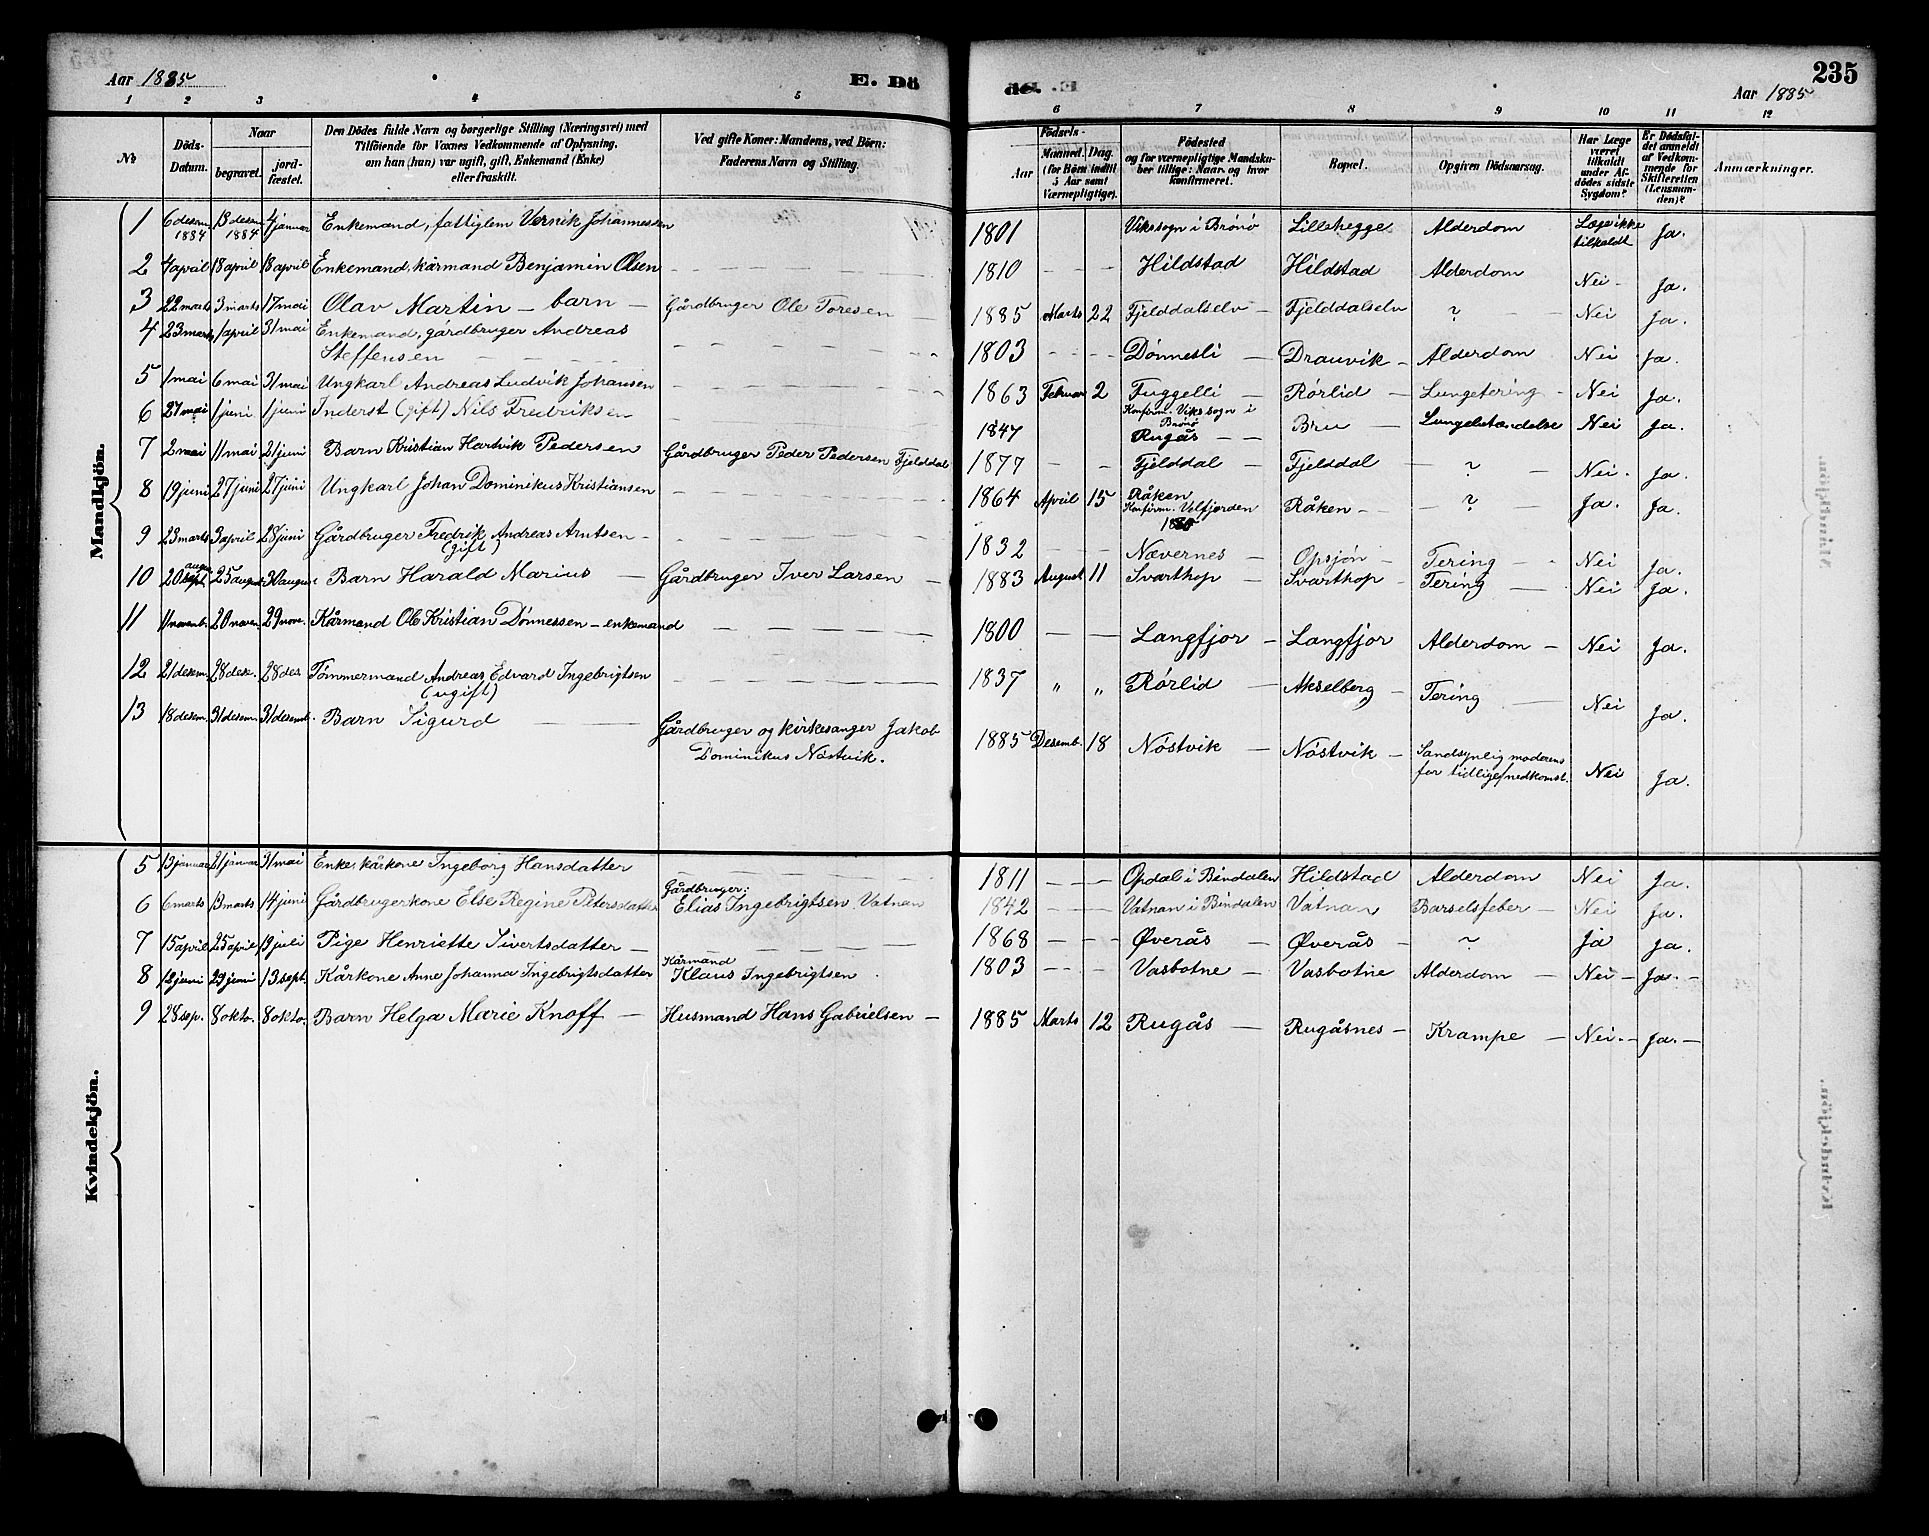 Aar 1885
E. Dö
de. .E
Aar 1885
235
1 2 3 4 5 6 7 8 9 10 11 12
No
Döds-Datum.
Naar
begravet.
jord-fæstet.
Den Dödes fulde Navn og borgerlige Stilling (Næringsvei) med
Tilföiende for Voxnes Vedkommende af Oplysning,
om han (hun) var ugift, gift, Enkemand (Enke)
eller fraskilt.
Ved gifte Koner: Mandens, ved Börn:
Faderens Navn og Stilling.
Födsels-
Aar
Maaned. Dag.
(for Börn indtil 5 Aar samt Værnepligtige).
Födested
og for værnepligtige Mandsku-
ber tillige: Naar og hvor
konfirmeret.
Bopæl.
Opgiven Dödsaarsag.
Har Læge været tilkaldt under Afdödes sidste Sygdom?
Er Dödsfaldet anmeldt af Vedkommende for Skifteretten (Lensmanden)?
Anmærkninger.
Mandkjön.
1 6 desem 1884 13 desem 1884 4 januar Enkemand, fattiglem Vernik Johannessen 1801 Viks sogn i Brønø Lillehegge Alderdom Læge ikke tilkaldt Ja.
2 4 april 18 april 18 april Enkemand, kårmand Benjamin Olsen — — — — 1810 — — — Hildstad Hildstad Alderdom Nei - Ja.
3 22 marts 3 marts 17 mai Olav Martin — barn — Gårdbruger Ole Toresen — 1885 Marts 22 Fjelddalselv — Fjelddalselv ? — Nei Ja.
4 23 marts 1 april 31 mai Enkemand, gårdbruger Andreas
Steffensen — — — — 1803 — — — Dønnesli — Drauvik — Alderdom — Nei — Ja.
5 1 mai 6 mai 31 mai Ungkarl Andreas Ludvik Johansen — — — — 1863 Februar 2 Fuggelli — Rørlid — Lungetering - Nei Ja.
Konfirm. Viks sogn i Brønø
6 27 mai 1 juni 1 juni Inderst (gift) Nils Fredriksen — — — — 1847 Rugås — — Bru — Lungebetændelse Nei Ja.
7 2 mai 11 mai 21 juni Barn Kristian Hartvik Pedersen Gårdbruger Peder Pedersen Fjelddal 1877 — — Fjelddal — Fjelddal — ? — Nei. Ja.
8 19 juni 27 juni 27 juni Ungkarl Johan Dominikus Kristiansen — — — — 1864 April 15 Råken Råken — — ? — Ja. Ja.
Konfirm. Velfjorden
9 23 marts 3 april 28 juni Gårdbruger Fredrik Andreas Arntsen —
(gift) — — — — 1832 — — Nævernes — Opsjøn — Tering — Nei Ja.
10 20 sept. augu. 25 august 30 august Barn Harald Marius — Gårdbruger Iver Larsen — 1883 August 11 Svarthop — Svarthop — Tering — Nei Ja.
11 11 novemb. 20 novem. 29 nove. Kårmand Ole Kristian Dønnessen — enkemand — — — — 1800 — — Langfjor — Langfjor Alderdom — Nei Ja.
12 21 desem. 28 dese. 28 des. Tømmermand Andreas Edvard Ingebrigtsen
(ugift) — — — — 1837 " " Rørlid — Akselberg — Tering — Nei Ja.
13 18 desem. 31 desem. 31 desemb. Barn Sigurd — — Gårdbruger og kirkesanger Jakob
Dominikus Nøstvik. 1885 Desemb. 18 Nøstvik — Nøstvik — Sandsynlig moderens
for tidlige nedkomst. Nei Ja.
Kvindekjön.
5 13 januar 21 januar 31 mai Enke, kårkone Ingeborg Hansdatter — — — — 1811 — — — Opdal i Bindalen Hildstad Alderdom Nei Ja.
6 6 marts 13 marts 14 juni Gårdbrugerkone Else Regine Pedersdatter Gårdbruger:
Elias Ingebrigtsen Vatnan 1842 — — — Vatnan i Bindalen Vatnan Barselsfeber — Nei Ja.
7 15 april 25 april 19 juli Pige Henriette Sivertsdatter — — — — 1868 — — — Øverås — Øverås — ? Ja Ja.
8 12 juni 29 juni 13 sept. Kårkone Anne Johanna Ingebrigtsdatter Kårmand
Klaus Ingebrigtsen 1803 — — — Vasbotne — Vasbotne Alderdom — Nei — Ja. —
9 28 sep. 8 okto. 8 okto. Barn Helga Marie Knoff — Husmand Hans Gabrielsen — 1885 Marts 12 Rugås — Rugåsnes — Krampe — Nei. — Ja. —